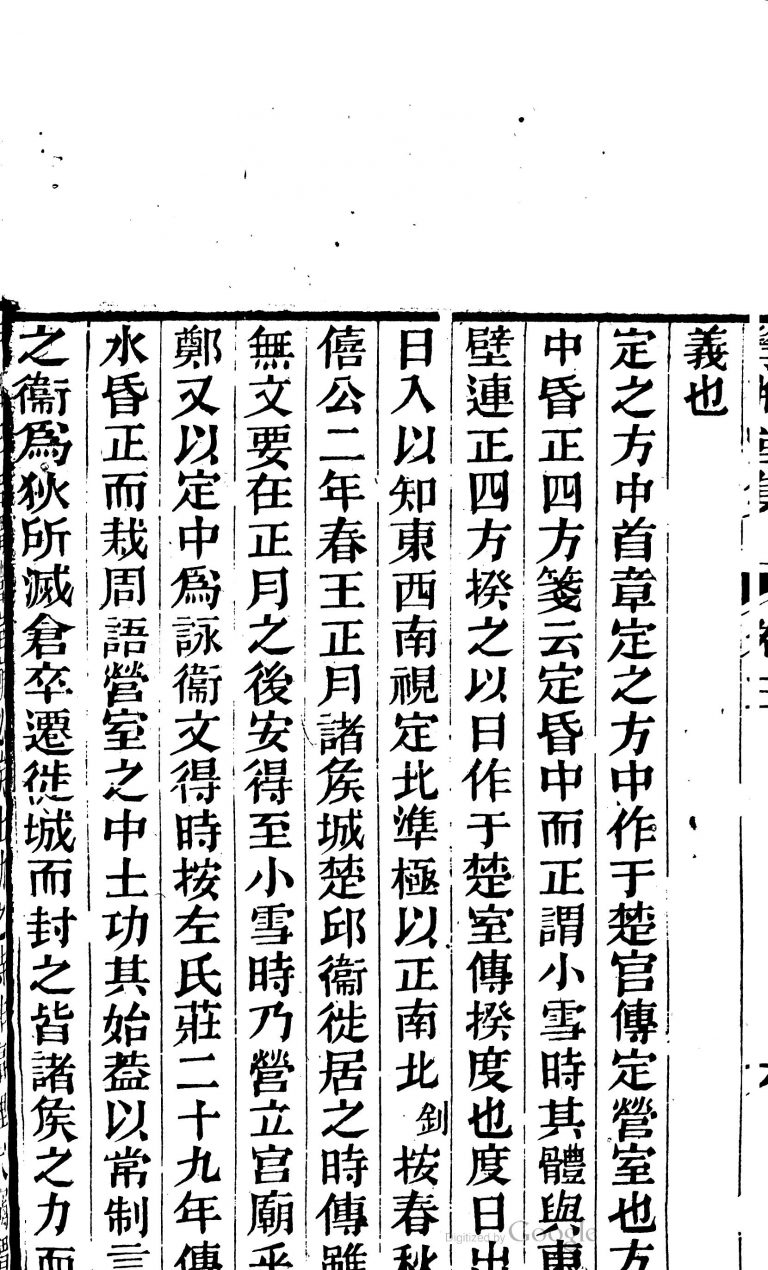 義也
定之方中首章定之方中作于楚宫傳定營室也方
中昏正四方箋云定昏中而正謂小雪時其體與東
壁連正四方揆之以日作于楚室傳揆度也度日出
日入以知東西南視定北準極以正南北釗按春秋
僖公二年春王正月諸矦城楚邱衞徙居之時傳雖
無文要在正月之後安得至小雪時乃營立宫廟乎
鄭又以定中爲詠衞文得時按左氏莊二十九年傳
水昏正而栽周語營室之中土功其始葢以常制言
之衞爲狄所滅倉卒遷徙城而封之皆諸矦之力而
Digitized by Google